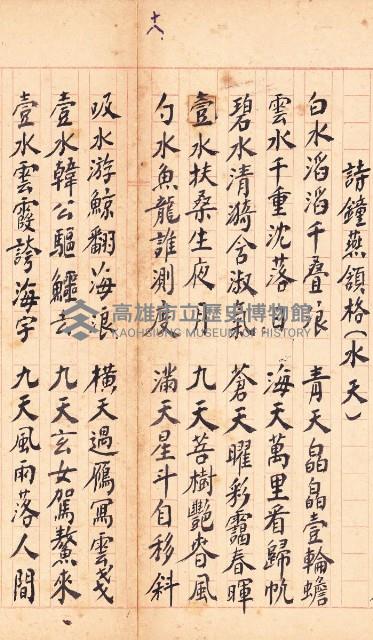 十八
詩鐘燕頷格(水天)
白水滔滔千叠浪 青天皛皛壹輪蟾
雲水千重沈落日 海天萬里看歸帆
碧水清漪含淑氣 蒼天曜彩靄春暉
壹水扶桑生夜月 九天菩樹艷春風
勺水魚龍誰測度 滿天星斗自移斜
吸水游鯨翻海浪 橫天過雁寫雲箋
壹水韓公驅鱷去 九天玄女駕鰲來
壹水雲霞誇海宇 九天風雨落人間
高雄市立歷史博物館
KAOHSIUNG MUSEUM OF HISTORY